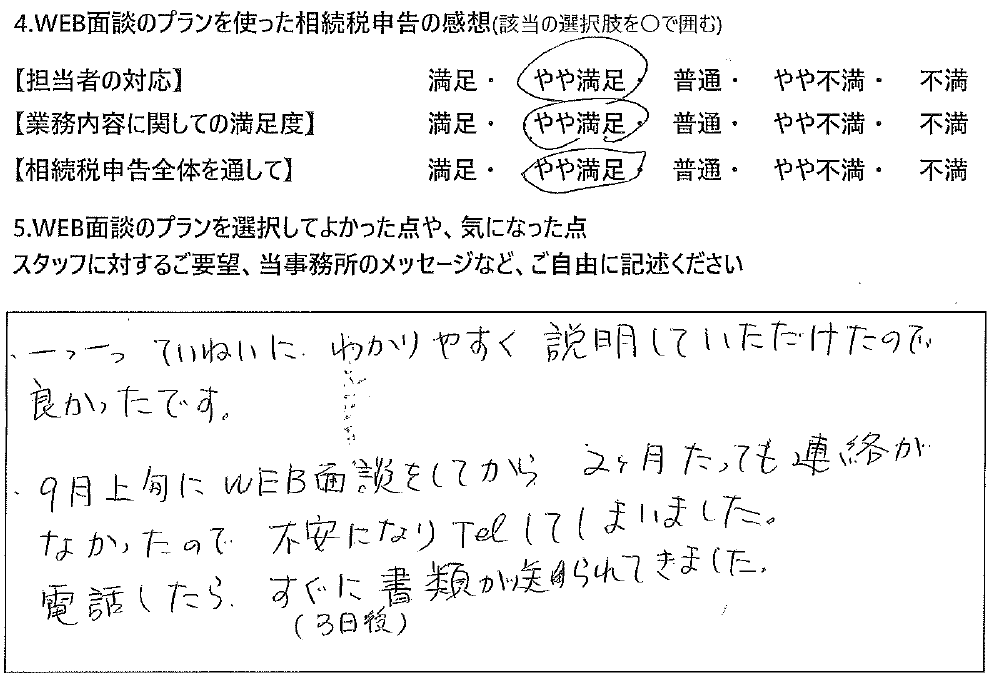 4.WEB面談のプランを使った相続税申告の感想(該当の選択肢を〇で囲む)
【担当者の対応】 満足・ やや満足・ 普通・ やや不満・ 不満
【業務内容に関しての満足度】 満足・ やや満足・ 普通・ やや不満・ 不満
【相続税申告全体を通して】 満足・ やや満足・ 普通・ やや不満・ 不満
5.WEB面談のプランを選択してよかった点や、気になった点
スタッフに対するご要望、当事務所のメッセージなど、ご自由に記述ください
・一つ一つ ていねいに わかりやすく 説明していただけたので
良かったです。
・9月上旬に WEB面談をしてから 2ヶ月たっても連絡が
なかったので 不安になりTelしてしまいました。
電話したら、すぐに書類が送られてきました。
(3日後)